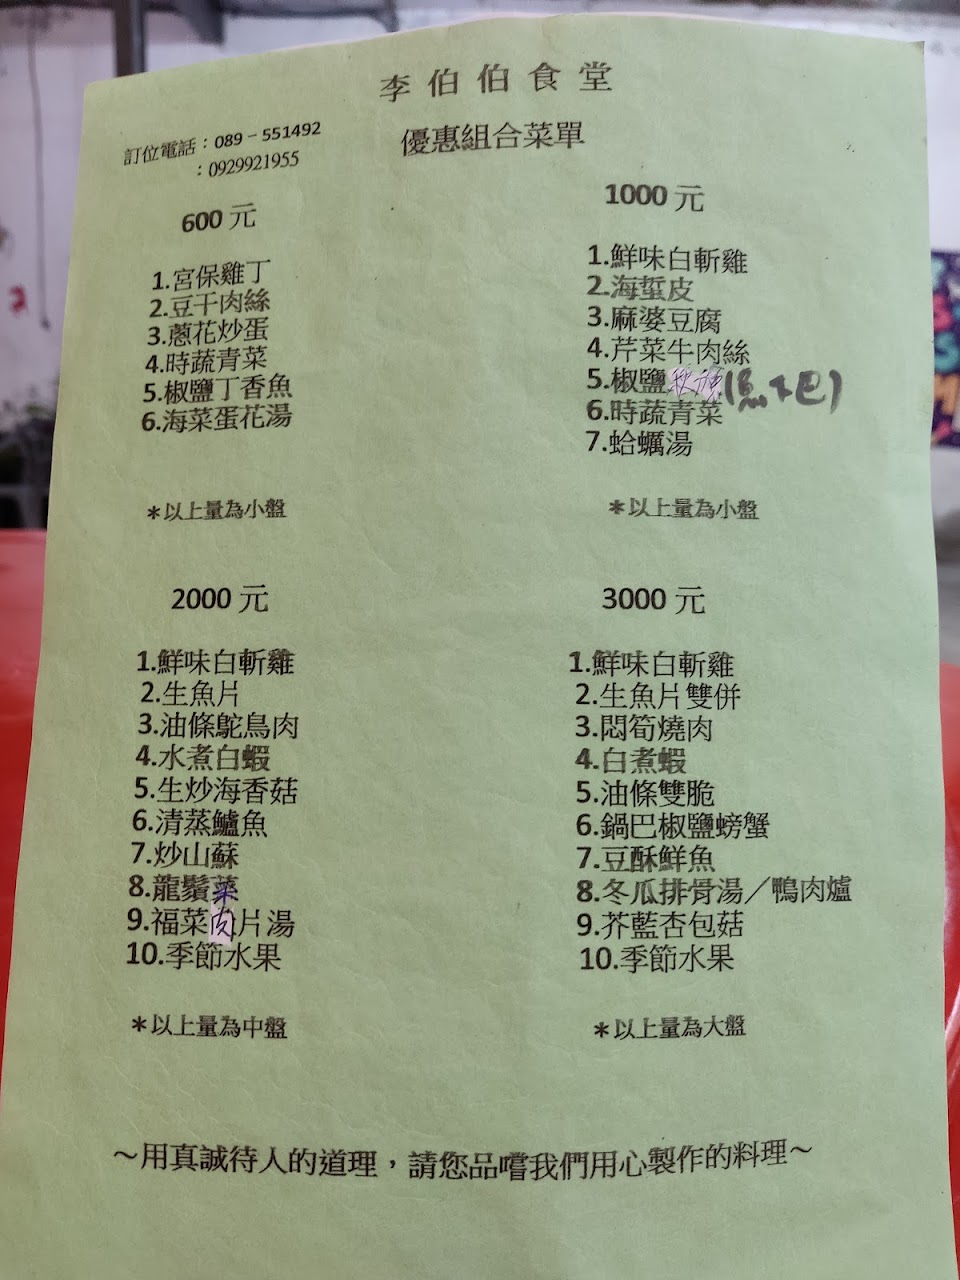 李伯伯食堂
訂位電話：089-551492
：0929921955
優惠組合菜單
600 元
1.宮保雞丁
2.豆干肉絲
3.蔥花炒蛋
4.時蔬青菜
5.椒鹽丁香魚
6.海菜蛋花湯
＊以上量為小盤
1000 元
1.鮮味白斬雞
2.海蜇皮
3.麻婆豆腐
4.芹菜牛肉絲
5.椒鹽(魚下巴)
6.時蔬青菜
7.蛤蠣湯
＊以上量為小盤
2000 元
1.鮮味白斬雞
2.生魚片
3.油條鴕鳥肉
4.水煮白蝦
5.生炒海香菇
6.清蒸鱸魚
7.炒山蘇
8.龍鬚菜
9.福菜肉片湯
10.季節水果
＊以上量為中盤
3000 元
1.鮮味白斬雞
2.生魚片雙併
3.悶筍燒肉
4.白煮蝦
5.油條雙脆
6.鍋巴椒鹽螃蟹
7.豆酥鮮魚
8.冬瓜排骨湯／鴨肉爐
9.芥藍杏包菇
10.季節水果
＊以上量為大盤
～用真誠待人的道理，請您品嚐我們用心製作的料理～